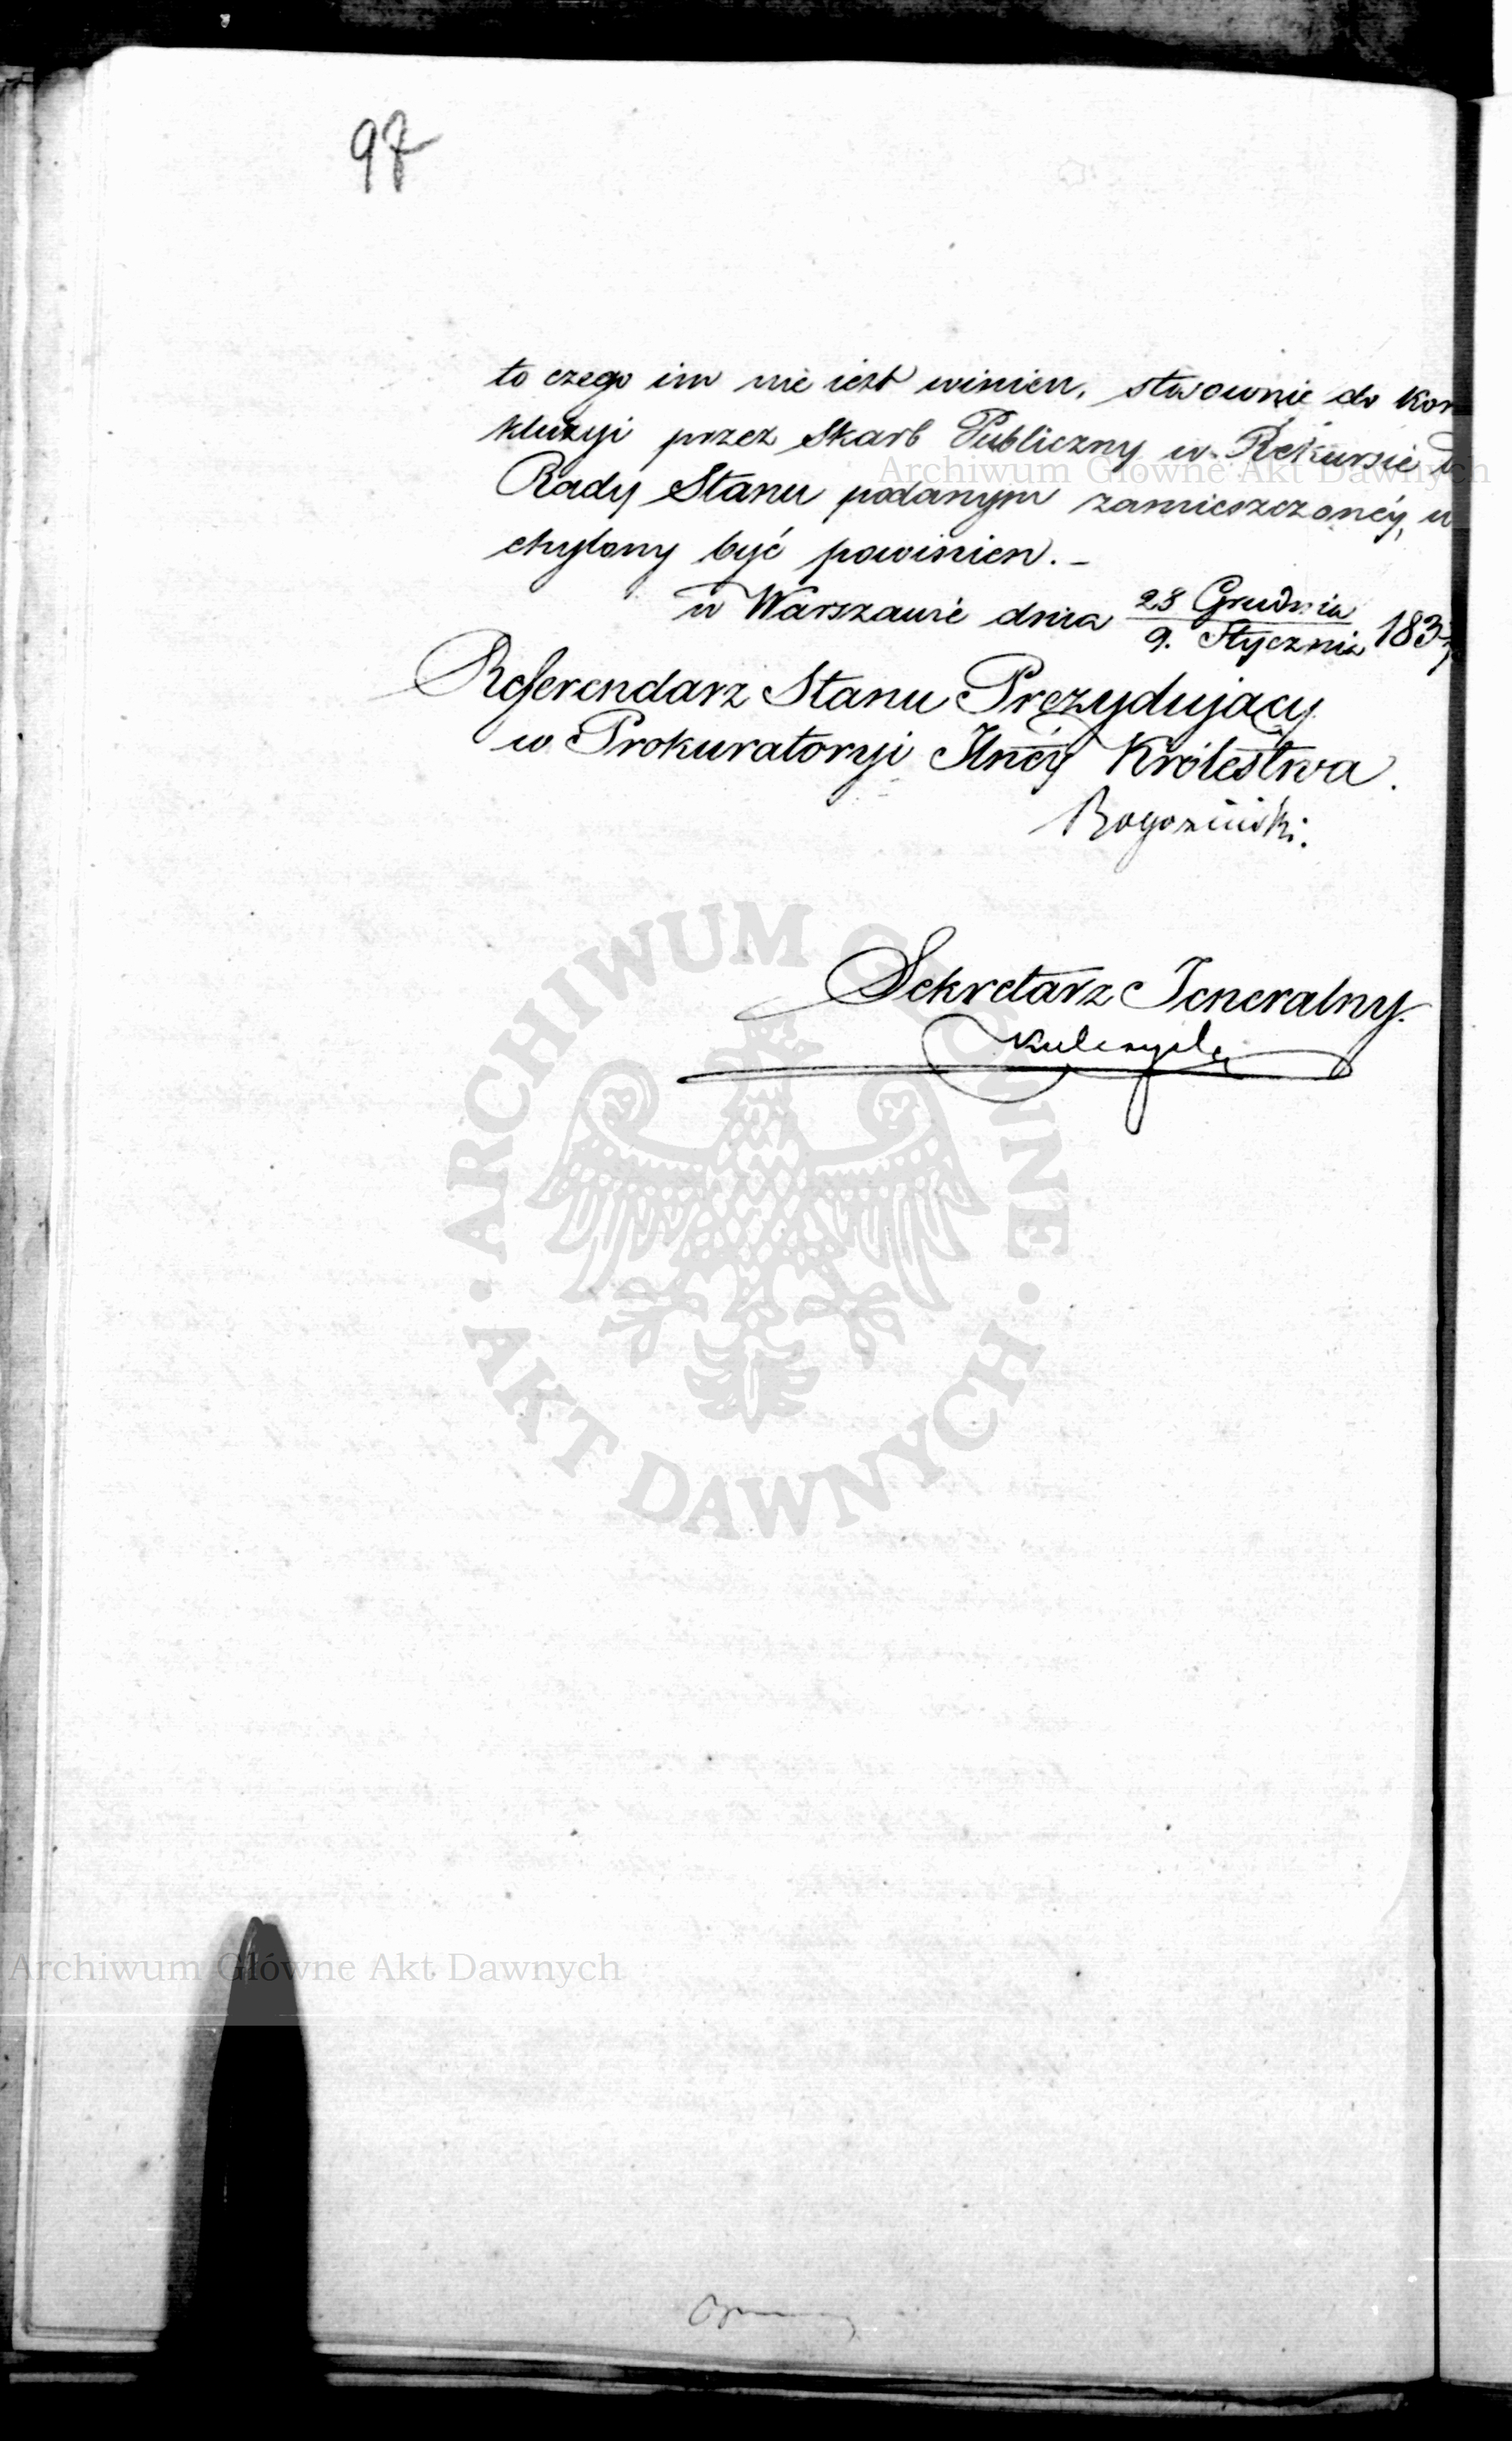 97
to czego im nie iest winien, stosownie do kon
kluzyi przez Skarb Publiczny w Rekursie d
Archiwum Główne Akt Dawnych
Rady Stanu podanym zamieszczonéy, u
chylony być powinien. -
w Warszawie dnia 28 Grudnia
9. Stycznia 183
Referendarz Stanu Prezydujący
w Prokuratoryi Jlnéy Królestwa.
Rogoziński.
Sekretarz Jeneralny.
Kulczycki
ARCHIWUM GŁÓWNE
AKT DAWNYCH
Archiwum Główne Akt Dawnych